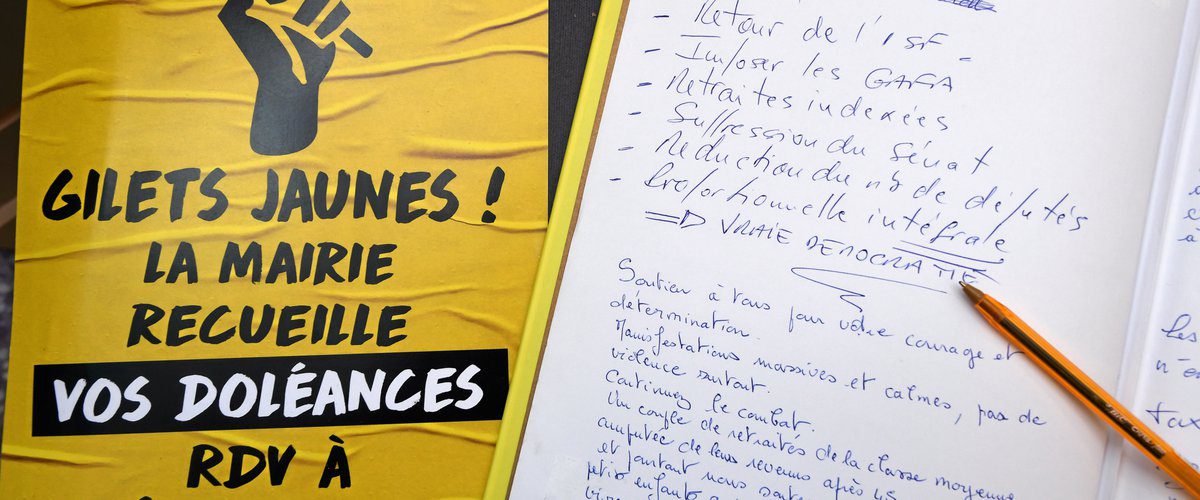 GILETS JAUNES !
LA MAIRIE
RECUEILLE
VOS DOLÉANCES
RDV À
- Retour de l'ISF -
- Imposer les GAFA
- Retraites indexées
- Suppression du Sénat
- Réduction du nb de députés
- Proportionnelle intégrale
=> VRAIE DEMOCRATIE
Soutien à tous pour votre courage et
détermination.
Manifestations massives et calmes, pas de
violence surtout.
Continuez le combat.
Un couple de retraités de la classe moyenne
amputée de leurs revenus après 45
et pourtant nous
petits enfants
les
n'en
BIC